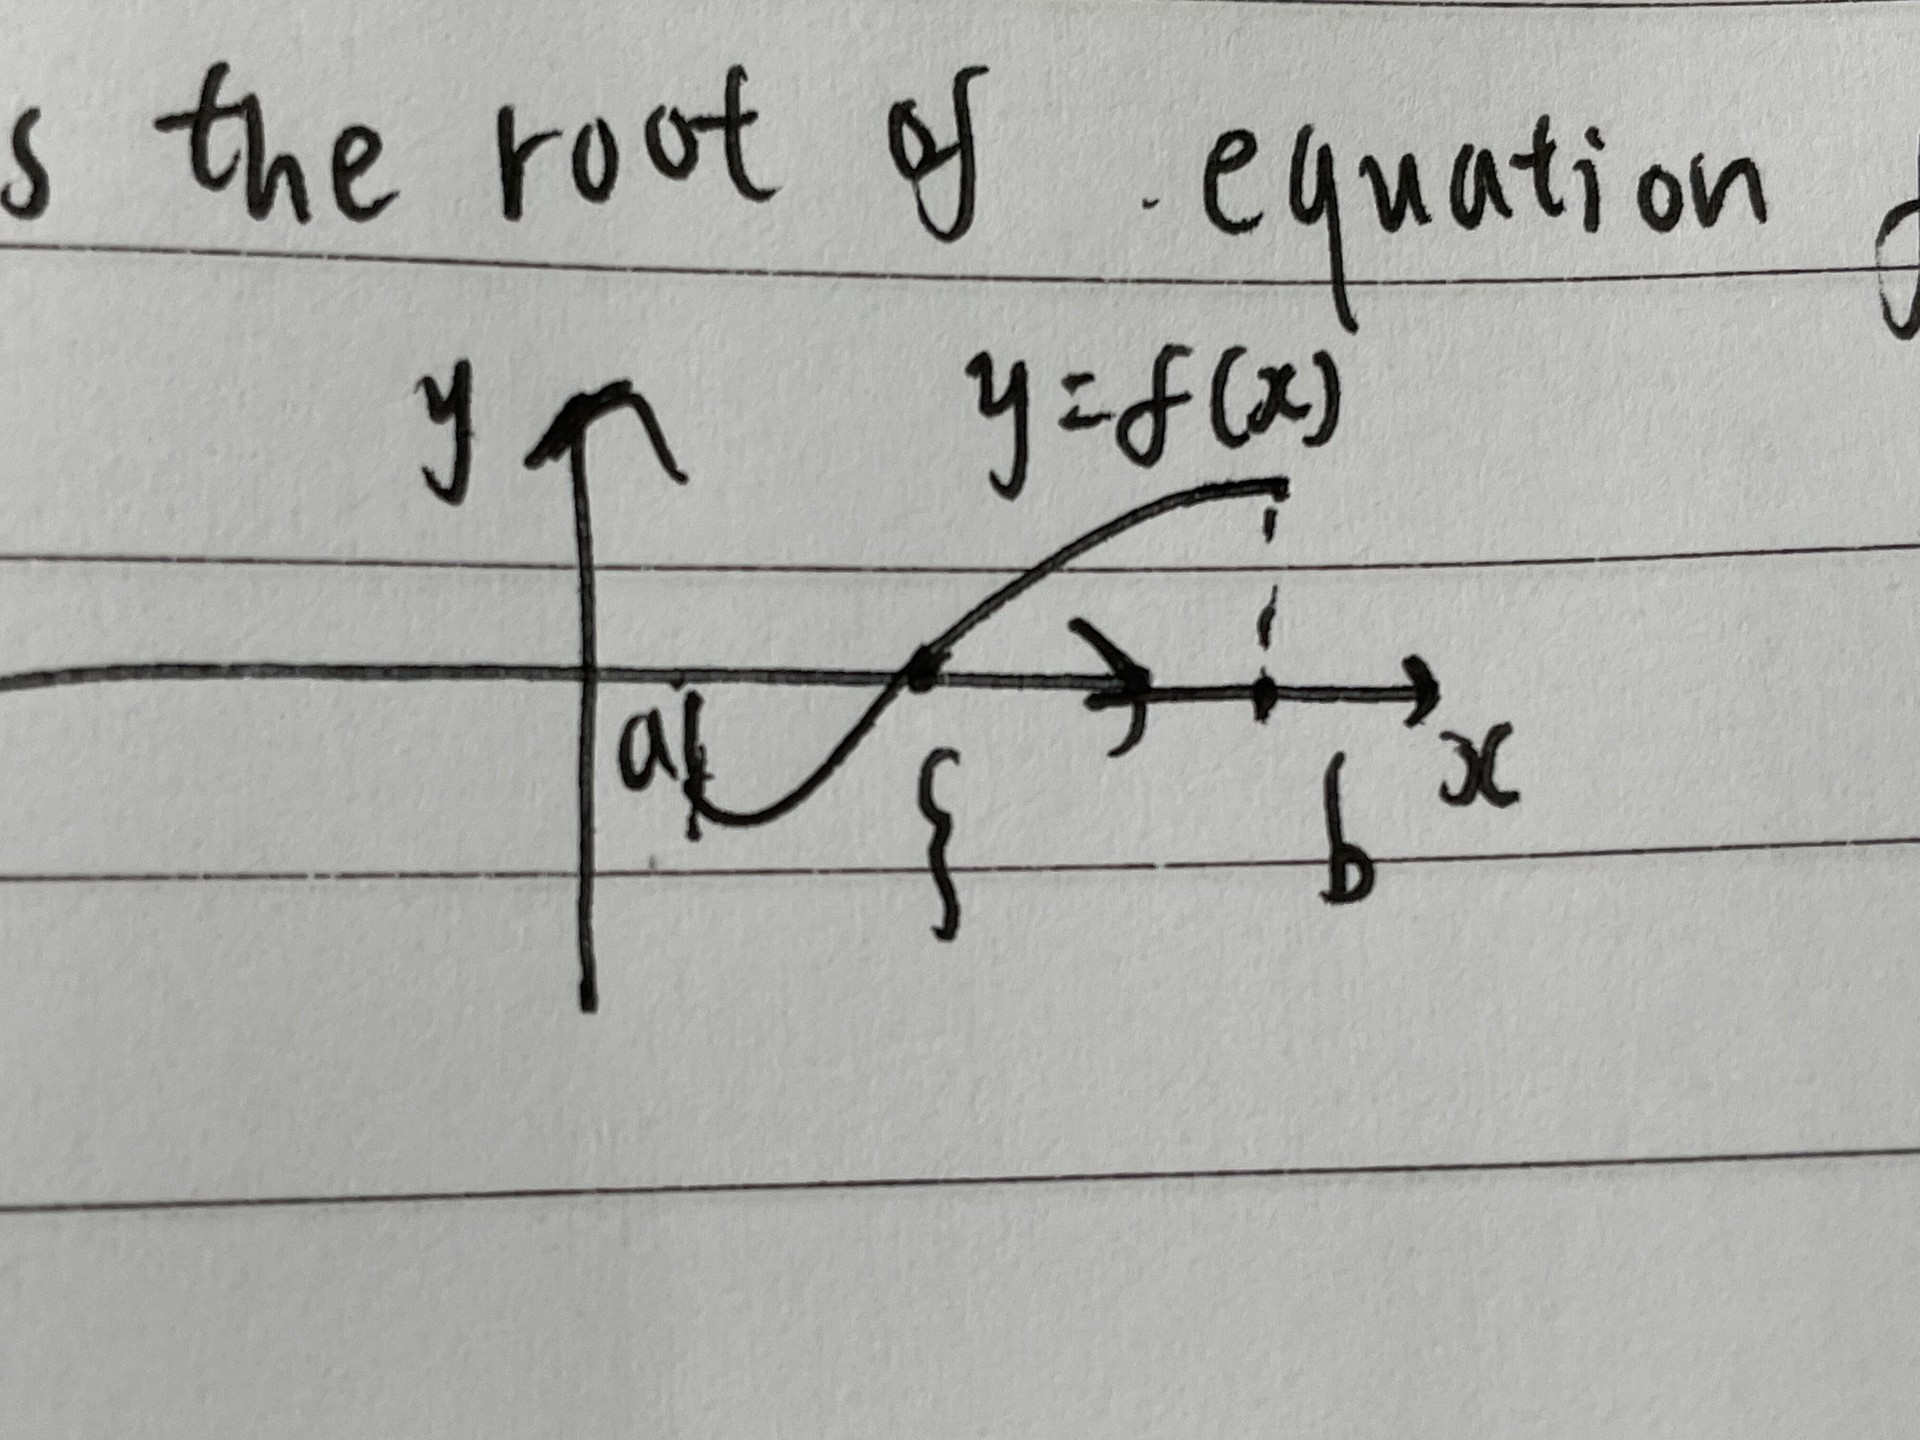 s the root of equation f
y y=f(x)
a { b x